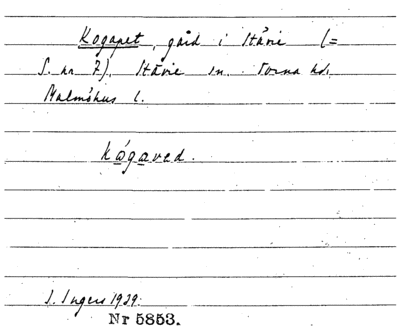 Kogapet, gård i Stävie (=
S. nr 7). Stävie sn. Torna hd.
Malmöhus l.
kǻgaved.
I. Ingers 1929.
Nr 5853.